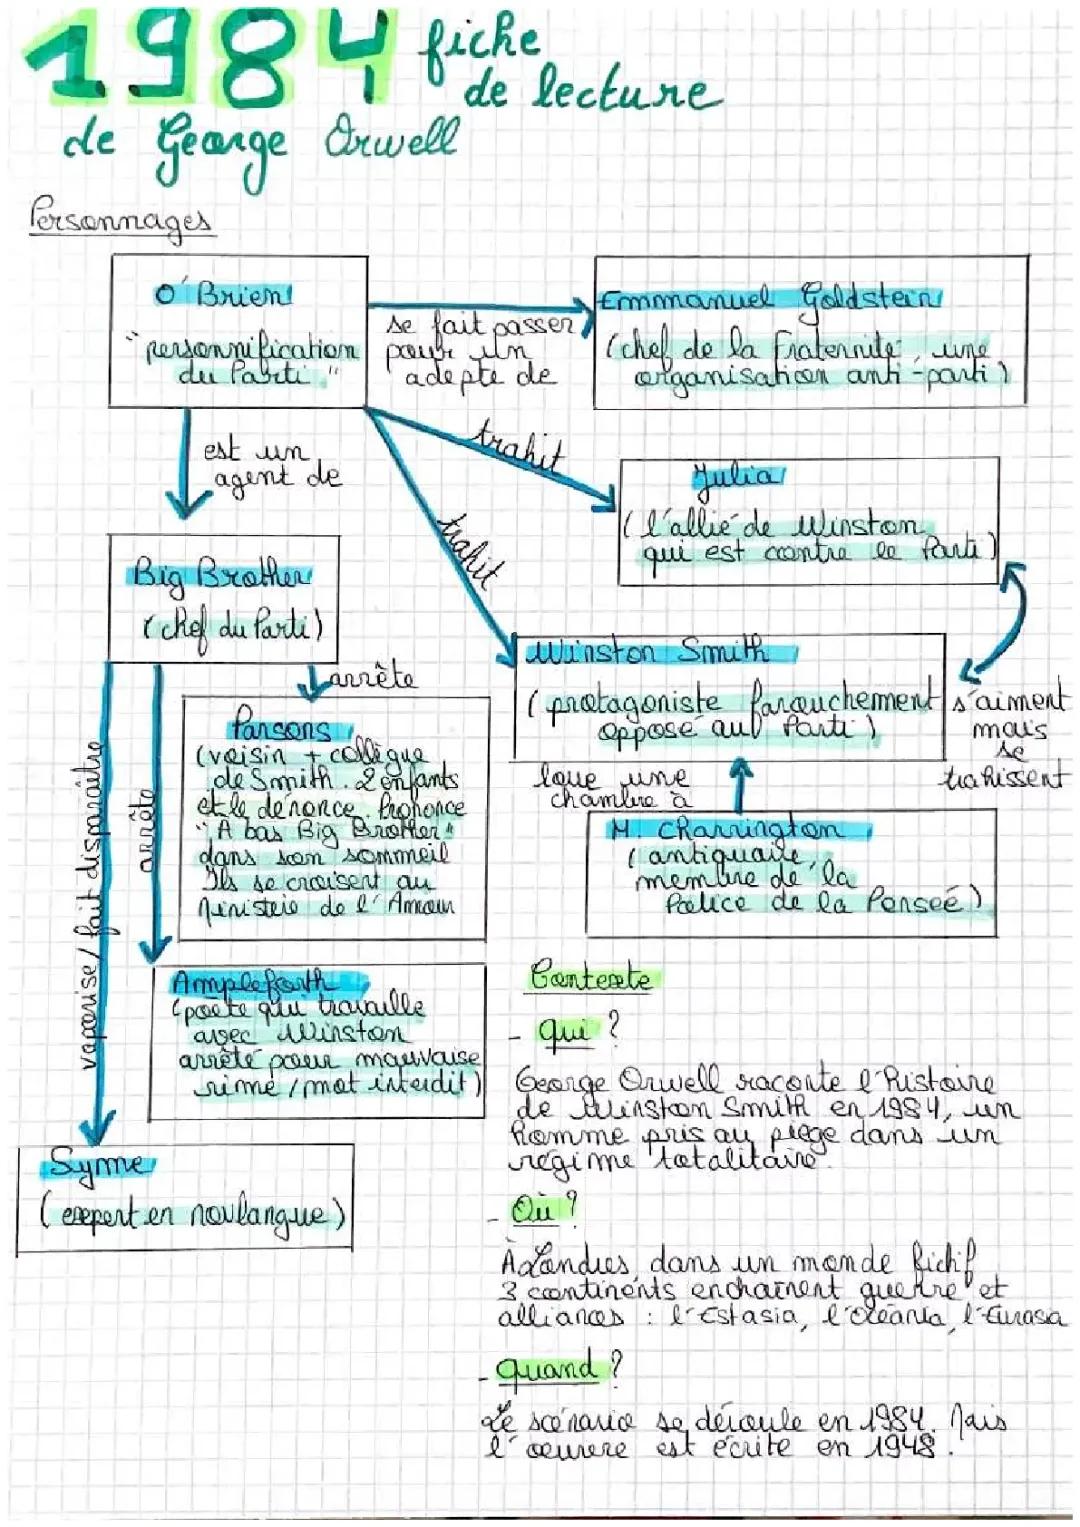 1984 fiche
de lecture
de George Orwell
Personnages
O'Brien
"personnification
du Parti"
se fait passer
pour un
adepte de
Emmanuel Goldstein
(chef de la Fraternité, une
organisation anti-parti)
est un
agent de
trahit
trahit
Julia
(l'allié de Winston
qui est contre le Parti)
Big Brother
(chef du Parti)
arrête
Winston Smith
(protagoniste farouchement
opposé au Parti)
s'aiment
mais
se
trahissent
Parsons
(voisin + collègue
de Smith. 2 enfants
et le dénonce. Prononce
"A bas Big Brother"
dans son sommeil
Ils se croisent au
Ministère de l'Amour
loue une
chambre à
M. Charrington
(antiquaire,
membre de la
Police de la Pensée)
vaporise/fait disparaître
arrête
Ampleforth
(poète qui travaille
avec Winston
arrêté pour mauvaise
rime/mot interdit)
Syme
(expert en novlangue)
Contexte
- qui ?
George Orwell raconte l'histoire
de Winston Smith en 1984, un
homme pris au piège dans un
régime totalitaire.
- Où ?
À Londres, dans un monde fictif
3 continents enchaînent guerre et
alliances : l'Estasia, l'Océania, l'Eurasia
- quand ?
Le scénario se déroule en 1984. Mais
l'oeuvre est écrite en 1948.